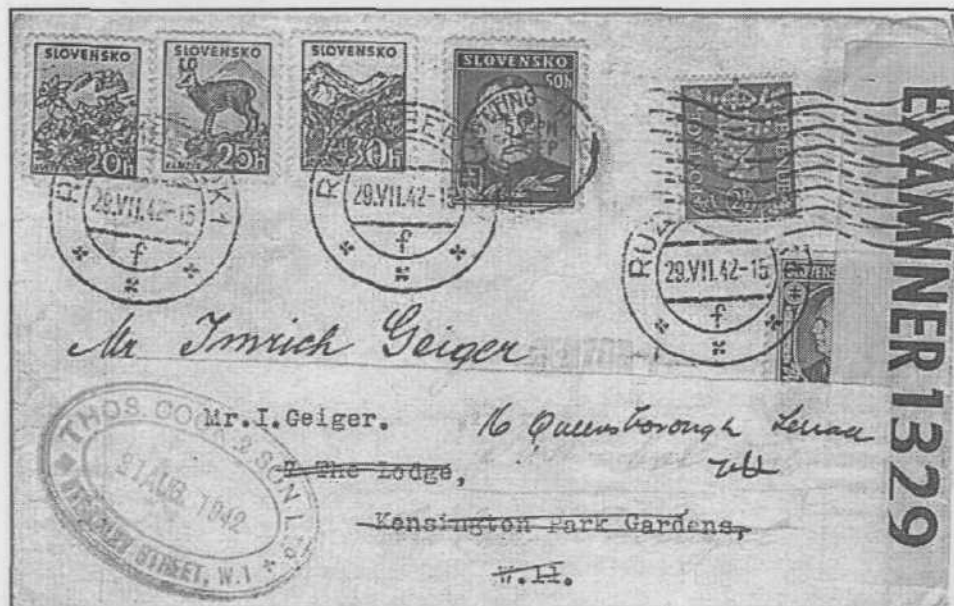 SLOVENSKO
20h
SLOVENSKO
25h
SLOVENSKO
30h
SLOVENSKO
50h
POSTAGE
REVENUE
29.VII.42-15
f
29.VII.42-15
f
RUŽ
29.VII.42-15
f
EXAMINER 1329
Mr Imrich Geiger
THOS. COOK & SON LTD
AUG. 1942
BERKELEY STREET, W.1
Mr.I.Geiger.
16 Queensborough Terrace
7 The Lodge,
Kensington Park Gardens,
W.11.